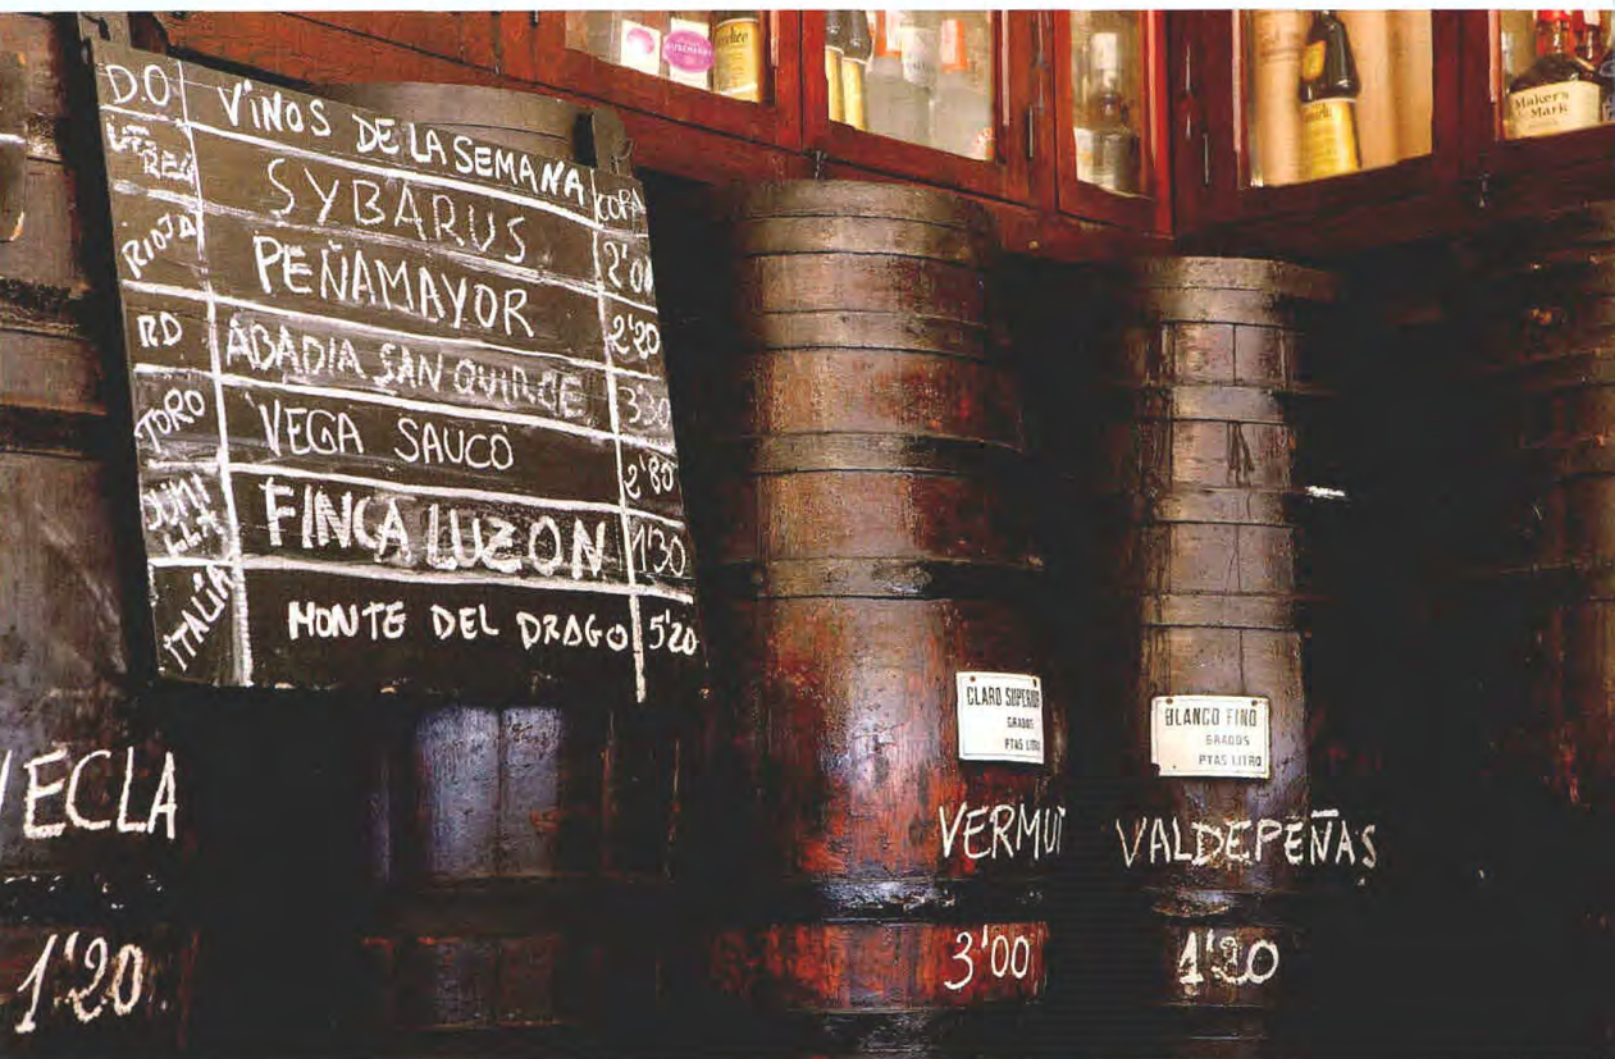 D.O VINOS DE LA SEMANA COPA
UT. REQ SYBARUS 2'00
RIOJA PEÑAMAYOR 2'20
RD ABADIA SAN QUIRCE 3'30
TORO VEGA SAUCO 2'80
JUMI
LLA FINCA LUZON 1'30
ITALIA MONTE DEL DRAGO 5'20
Maker's
Mark
CLARO SUPERIOR
GRADOS
PTAS LITRO
BLANCO FINO
GRADOS
PTAS LITRO
YECLA
1'20
VERMUT
3'00
VALDEPEÑAS
1'20